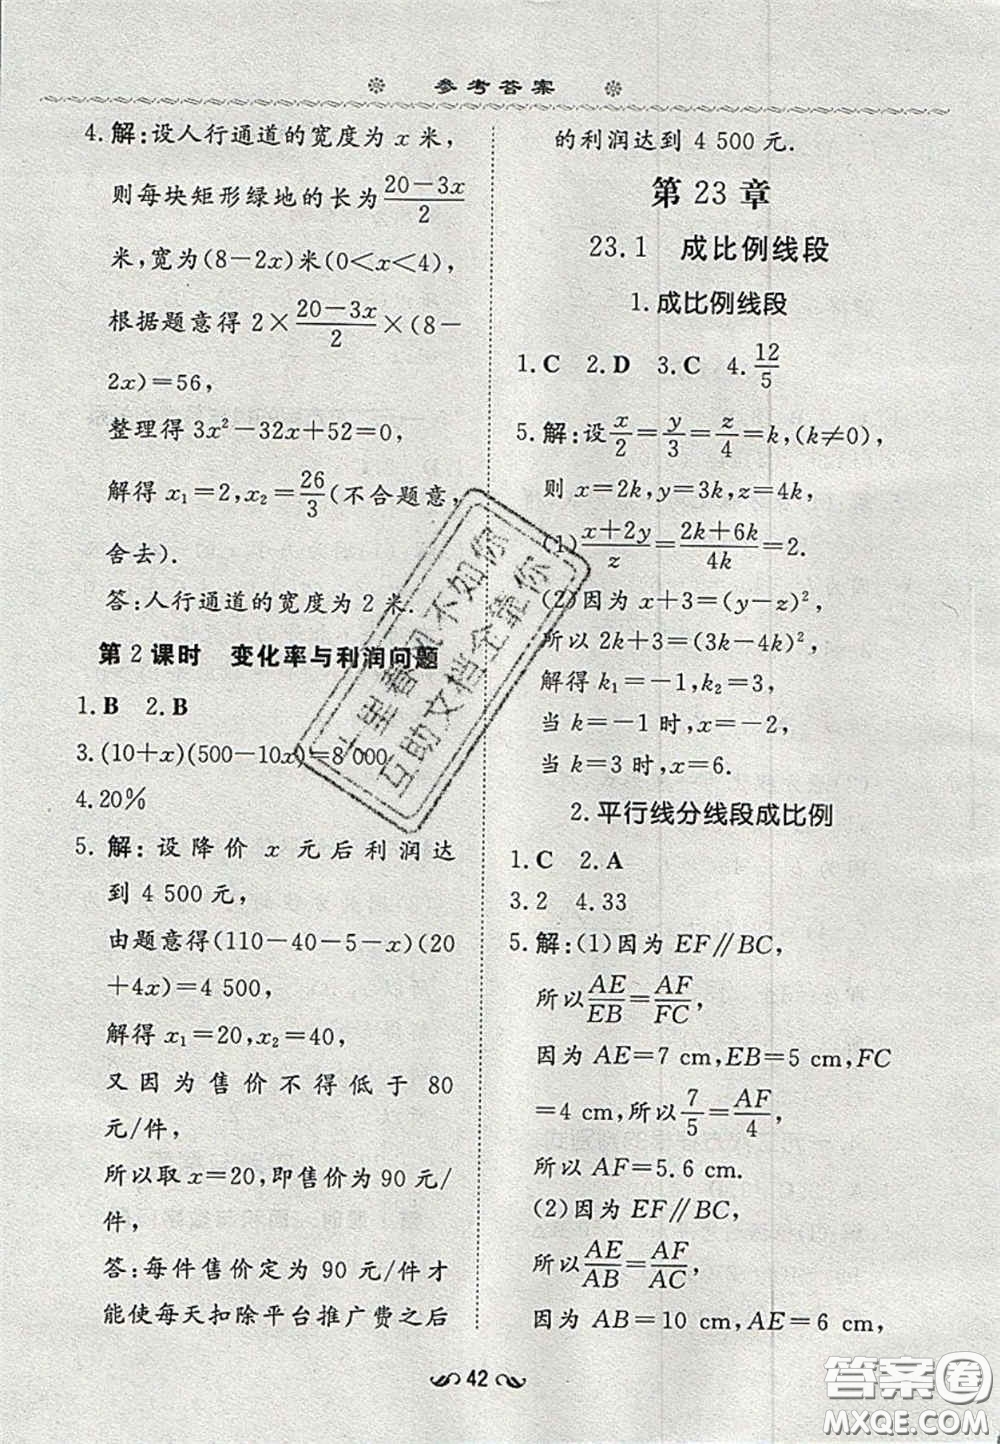 参考答案
4. 解:设人行通道的宽度为 x 米,
则每块矩形绿地的长为 (20-3x)/2
米,宽为(8-2x)米(0<x<4),
根据题意得 2×(20-3x)/2×(8-
2x)=56,
整理得 3x²-32x+52=0,
解得 x₁=2,x₂=26/3(不合题意,
舍去).
答:人行通道的宽度为 2 米.
第 2 课时 变化率与利润问题
1.B 2.B
3.(10+x)(500-10x)=8 000
4.20%
5. 解:设降价 x 元后利润达
到 4 500 元,
由题意得(110-40-5-x)(20
+4x)=4 500,
解得 x₁=20,x₂=40,
又因为售价不得低于 80
元/件,
所以取 x=20,即售价为 90 元/
件,
答:每件售价定为 90 元/件才
能使每天扣除平台推广费之后
的利润达到 4 500 元.
第 23 章
23.1 成比例线段
1.成比例线段
1.C 2.D 3.C 4.12/5
5. 解:设 x/2=y/3=z/4=k,(k≠0),
则 x=2k,y=3k,z=4k,
(1)(x+2y)/z=(2k+6k)/4k=2.
(2)因为 x+3=(y-z)²,
所以 2k+3=(3k-4k)²,
解得 k₁=-1,k₂=3,
当 k=-1 时,x=-2,
当 k=3 时,x=6.
2.平行线分线段成比例
1.C 2.A
3.2 4.33
5. 解:(1)因为 EF∥BC,
所以 AE/EB=AF/FC,
因为 AE=7 cm,EB=5 cm,FC
=4 cm,所以 7/5=AF/4,
所以 AF=5.6 cm.
(2)因为 EF∥BC,
所以 AE/AB=AF/AC,
因为 AB=10 cm,AE=6 cm,
42
十里春风不如你
互助文档全靠你
答案圈
MXQE.COM